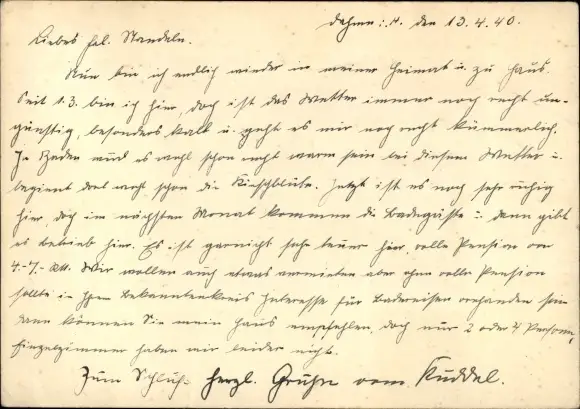 Dahme i. H. den 13.4.40.
Liebes Frl. Standeln.
Nun bin ich endlich wieder in meiner Heimat u. zu Haus.
Seit 1.3. bin ich hier, doch ist das Wetter immer noch recht un-
günstig, besonders kalt u. geht es mir noch recht kümmerlich.
In Baden wird es wohl schon recht warm sein bei diesem Wetter u.
beginnt dort wohl schon die Kirschblüte. Jetzt ist es noch sehr ruhig
hier, doch im nächsten Monat kommen die Badegäste u. dann gibt
es Betrieb hier. Es ist garnicht sehr teuer hier, volle Pension von
4.-7.- RM. Wir wollen auch etwas vermieten aber ohne volle Pension
sollte in Ihrem Bekanntenkreis Interesse für Badereisen vorhanden sein
dann können Sie mein Haus empfehlen, doch nur 2 oder 4 Personen,
Einzelzimmer haben wir leider nicht.
Zum Schluß herzl. Grüße vom Kuddel.